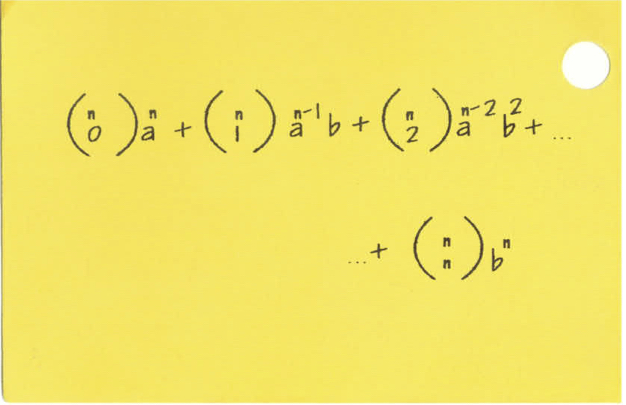 (n 0)aⁿ + (n 1)aⁿ⁻¹b + (n 2)aⁿ⁻²b² + ...
...+ (n n)bⁿ